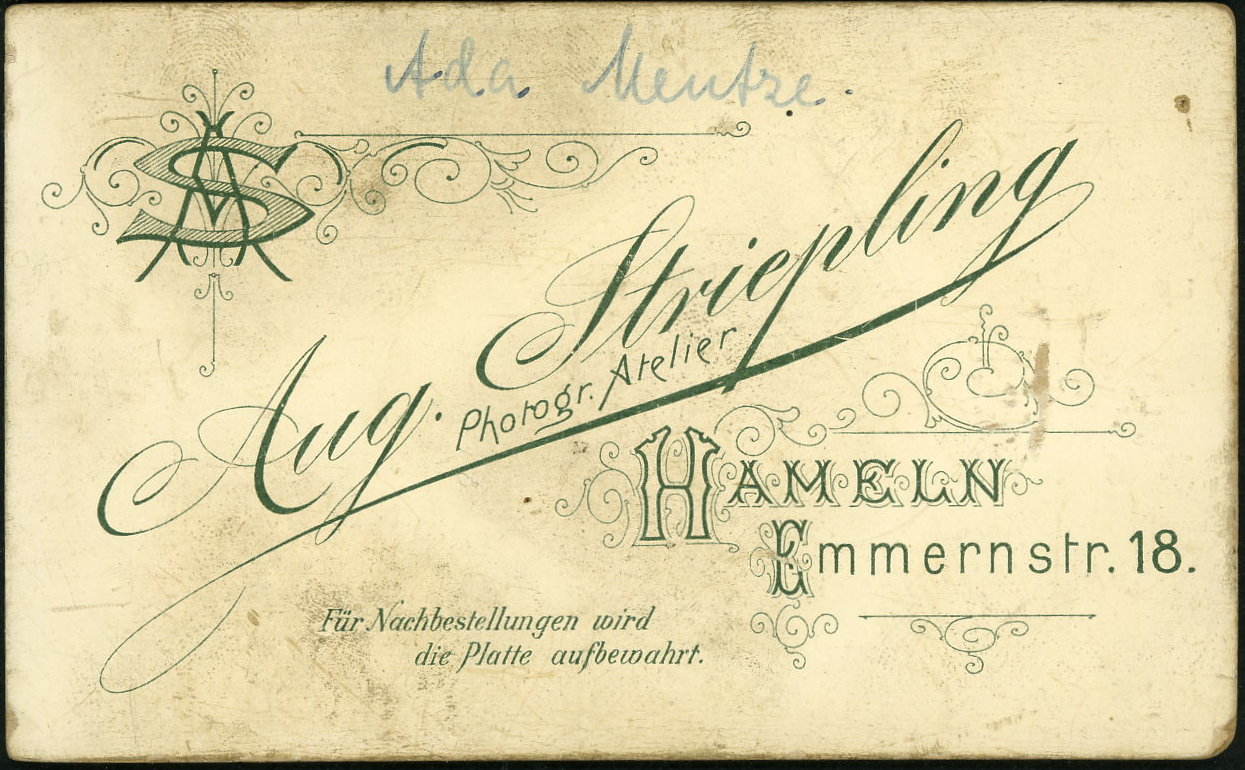 Ada Mentze.
AS
Aug. Striepling
Photogr. Atelier
HAMELN
Emmernstr. 18.
Für Nachbestellungen wird
die Platte aufbewahrt.